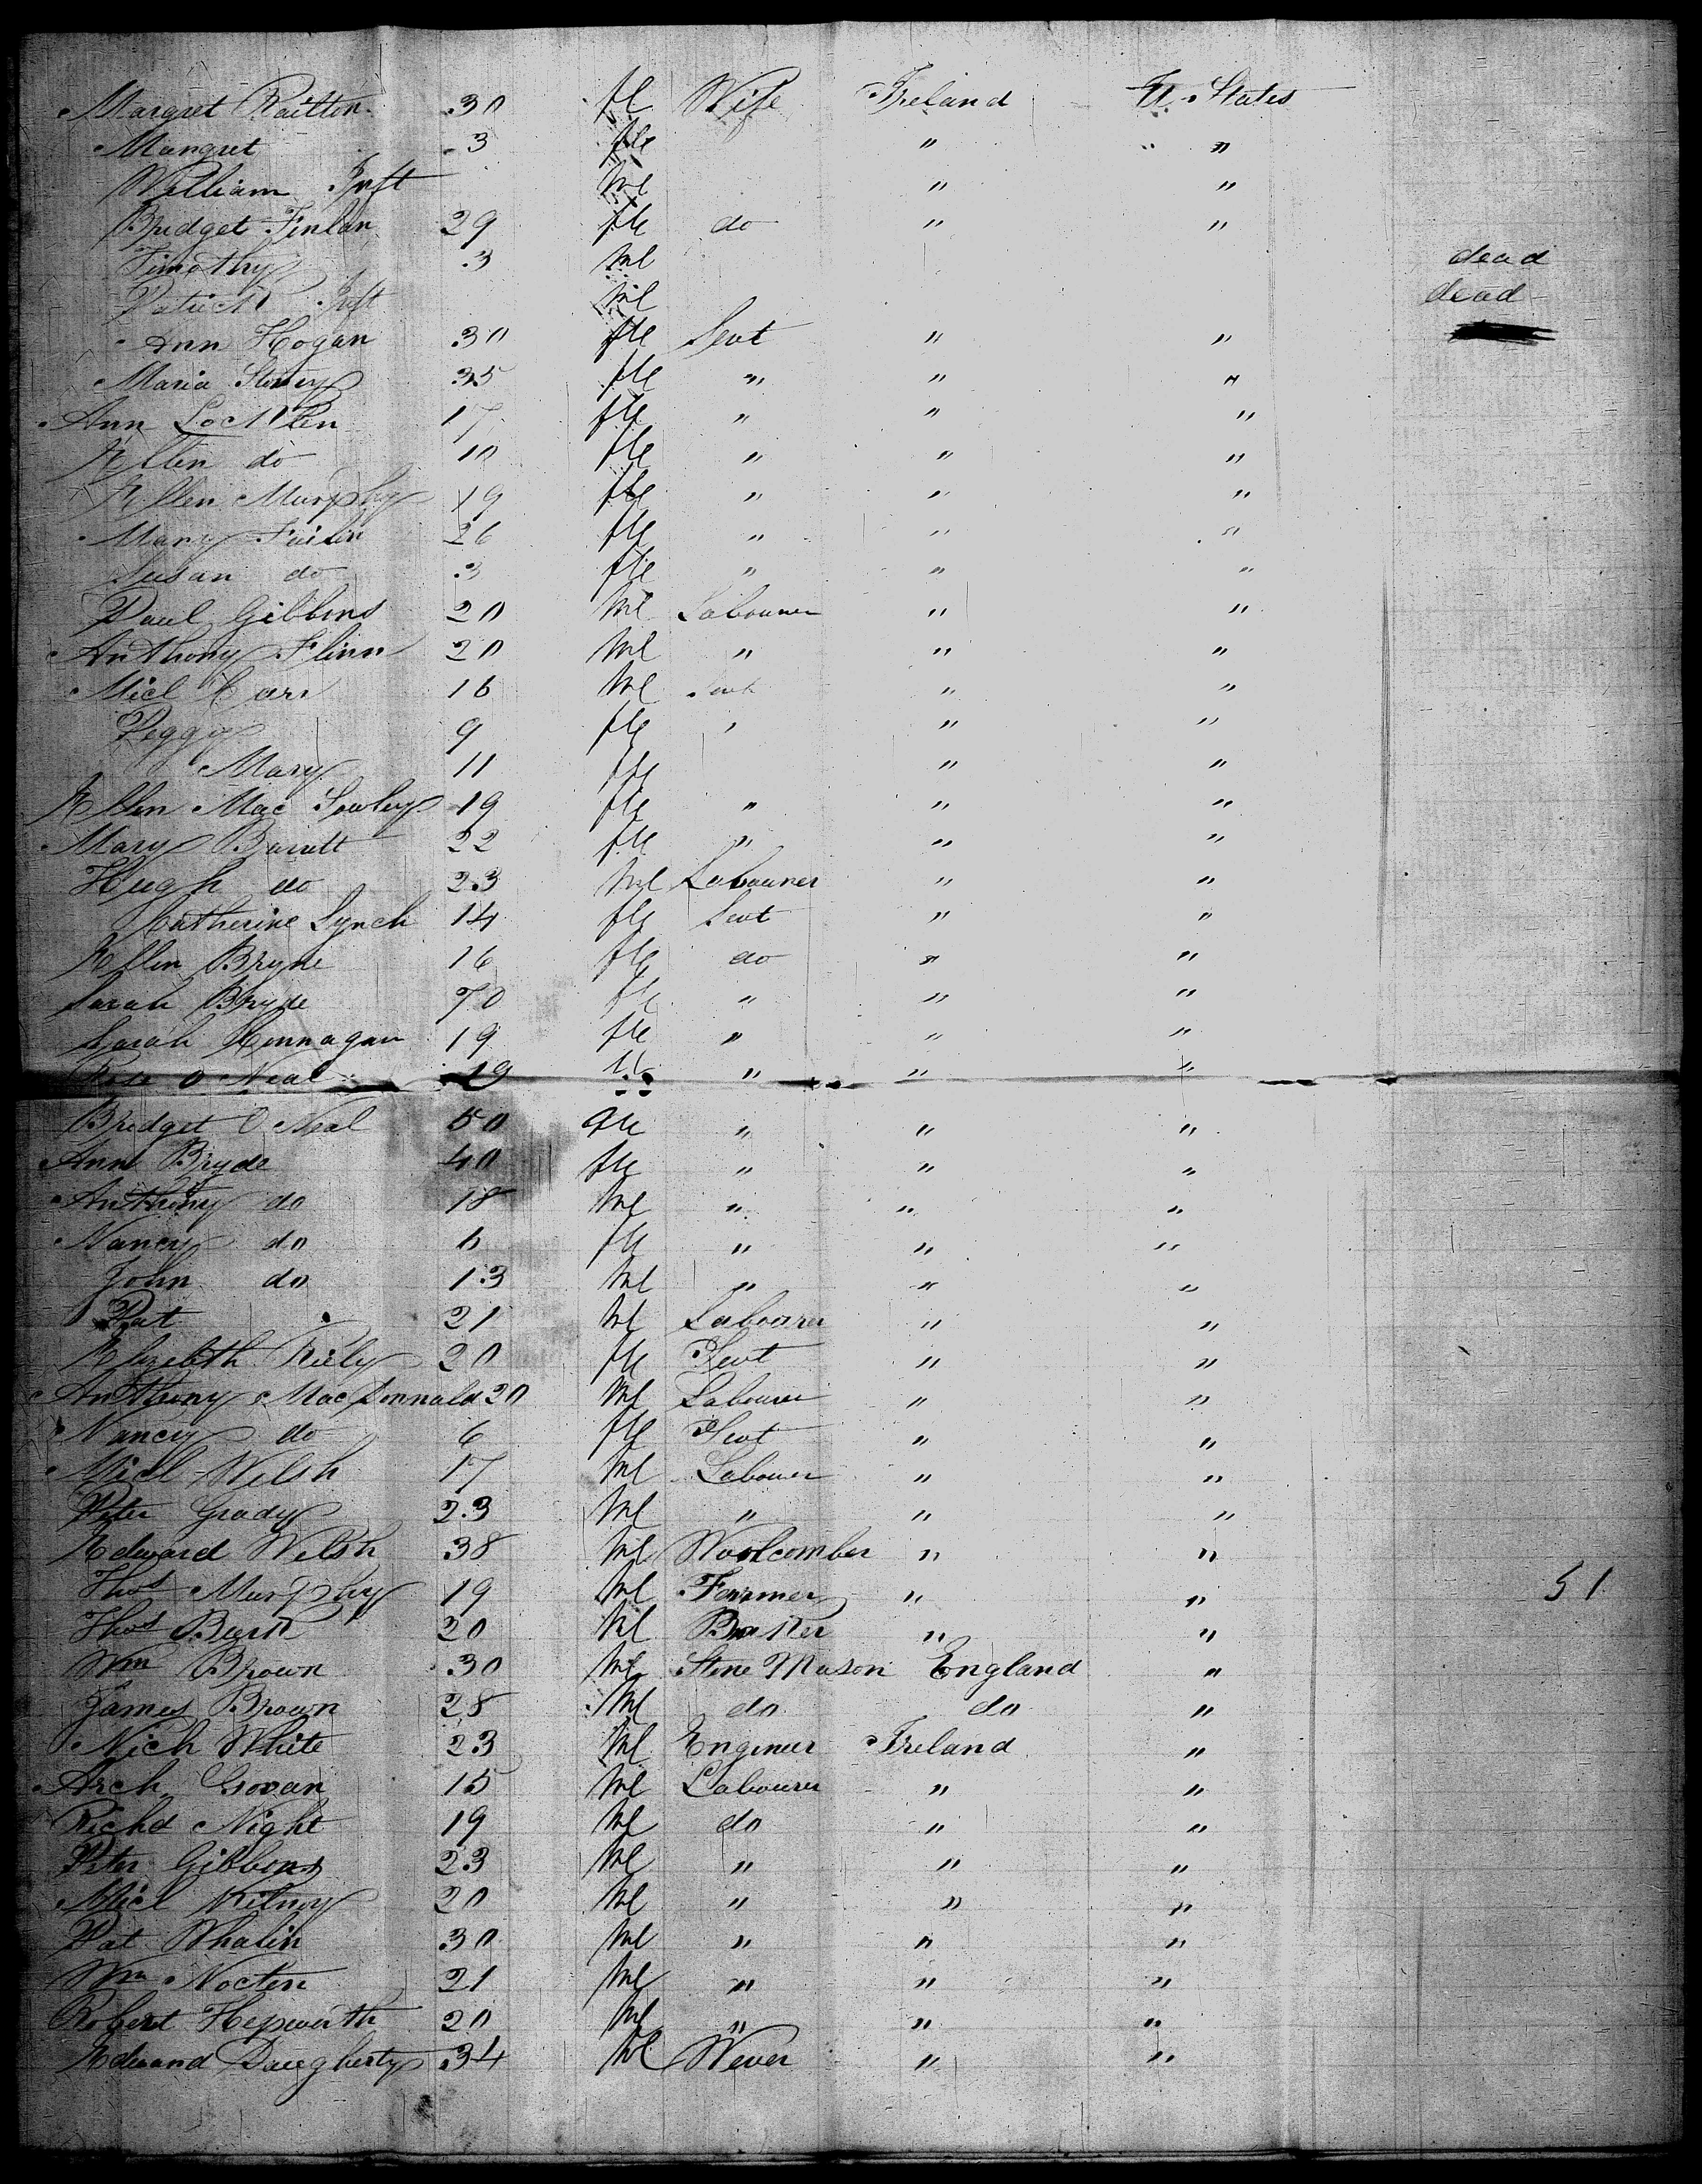 Margret Railton 30 fle Wife Ireland U. States
Margret 3 fle " "
William Inft Ml " "
Bridget Finlan 29 fle do " "
Timothy 3 Ml dead
Patrick Inft Ml dead
Ann Hogan 30 fle Sevt " "
Maria Storey 35 fle " " "
Ann Locklen 17 fle " " "
Ellen do 10 fle " " "
Ellen Murphy 19 fle " " "
Mary Failin 26 fle " " "
Susan do 3 fle " " "
Paul Gibbins 20 Ml Labourer " "
Anthony Flinn 20 Ml " " "
Micl Carr 16 Ml Sevt " "
Peggy 9 fle " " "
Mary 11 fle " "
Ellen Mac Sowley 19 fle " " "
Mary Barrett 22 fle " " "
Hugh do 23 Ml Labourer " "
Catherine Lynch 14 fle Sevt " "
Ellen Bryne 16 fle do " "
Sarah Bryde 70 fle " " "
Sarah Hennagan 19 fle " " "
Rose O Neal 19 " " "
Bridget O Neal 50 fle " " "
Ann Bryde 40 fle " " "
Anthony do 18 Ml " " "
Nancy do 6 fle " " "
John do 13 Ml " " "
Pat 21 Ml Labourer " "
Elizebith Riely 20 fle Sevt " "
Anthony Mac Donnald 20 Ml Labourer " "
Nancy do 6 fle Sevt " "
Micl Welsh 17 Ml Labourer " "
Peter Grady 23 Ml " " "
Edward Welsh 38 Ml Woolcomber " "
Thos Murphy 19 Ml Farmer " " 51
Thos Burk 20 Ml Baker " "
Wm Brown 30 Ml Stone Mason England "
James Brown 28 Ml do do "
Nich White 23 Ml Engineer Ireland "
Arch Govan 15 Ml Labourer " "
Richd Night 19 Ml do " "
Peter Gibbons 23 Ml " " "
Micl Kilroy 20 Ml " " "
Pat Whalin 30 Ml " " "
Wm Nocten 21 Ml " " "
Robert Hepworth 20 Ml " " "
Edward Daugherty 34 Ml Wever " "